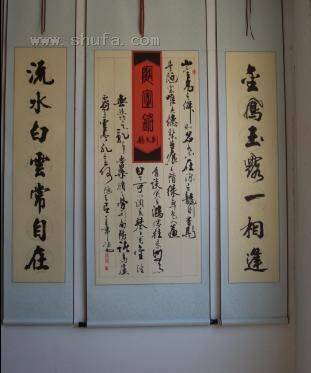 www.shufa.com
金鳳玉露一相逢
陋室銘
山不在高有仙則名水不在深有龍則靈斯
是陋室惟吾德馨苔痕上階綠草色入簾
青談笑有鴻儒往來無
白丁可以調素琴閱金經
無絲竹之亂耳無案牘之勞形南陽諸葛廬
西蜀子雲亭孔子云何陋之有
流水白雲常自在